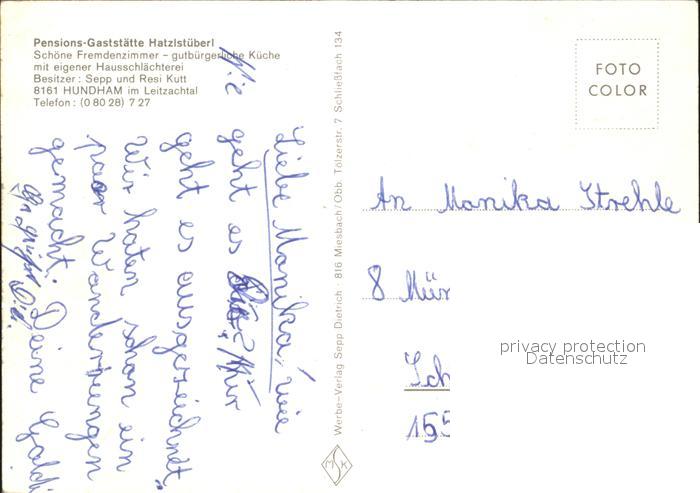 Pensions-Gaststätte Hatzlstüberl
Schöne Fremdenzimmer – gutbürgerliche Küche
mit eigener Hausschlächterei
Besitzer : Sepp und Resi Kutt
8161 HUNDHAM im Leitzachtal
Telefon : (0 80 28) 7 27
Liebe Monika, wie
geht es
Mir
geht es ausgezeichnet.
Wir haten schon ein
paar Wanderungen
gemacht. Deine Galdi
Werbe-Verlag Sepp Dietrich · 816 Miesbach/Obb. Tölzerstr. 7 Schließfach 134
MSK
FOTO
COLOR
An Monika Strehle
8 Mün
Sch
155
privacy protection
Datenschutz